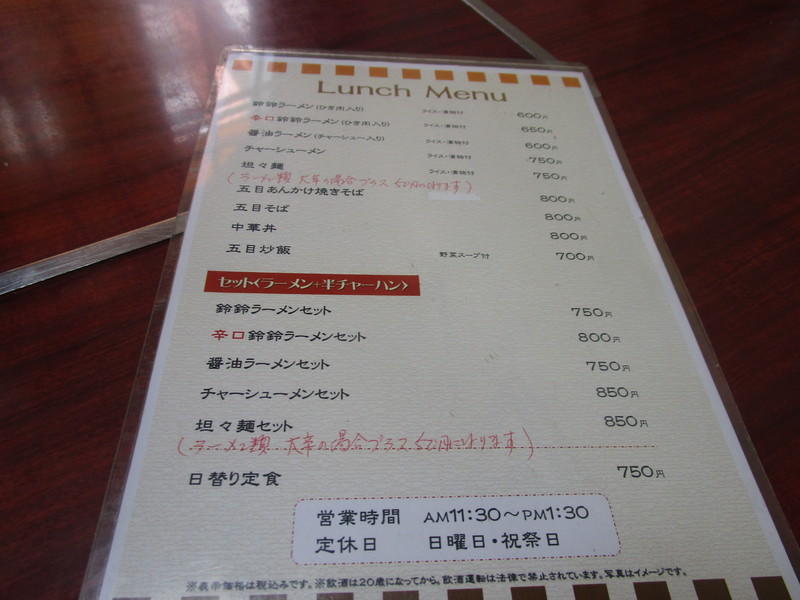 Lunch Menu
鈴鈴ラーメン(ひき肉入り) ライス・漬物付 600円
辛口鈴鈴ラーメン(ひき肉入り) ライス・漬物付 650円
醤油ラーメン(チャーシュー入り) ライス・漬物付 600円
チャーシューメン ライス・漬物付 750円
坦々麺 ライス・漬物付 750円
(ラーメン類 大辛の場合プラス50円になります)
五目あんかけ焼きそば 800円
五目そば 800円
中華丼 800円
五目炒飯 野菜スープ付 700円
セット〈ラーメン+半チャーハン〉
鈴鈴ラーメンセット 750円
辛口鈴鈴ラーメンセット 800円
醤油ラーメンセット 750円
チャーシューメンセット 850円
坦々麺セット 850円
(ラーメン類 大辛の場合プラス50円になります)
日替り定食 750円
営業時間 AM11:30〜PM1:30
定休日 日曜日・祝祭日
※表示価格は税込みです。※飲酒は20歳になってから。飲酒運転は法律で禁止されています。写真はイメージです。